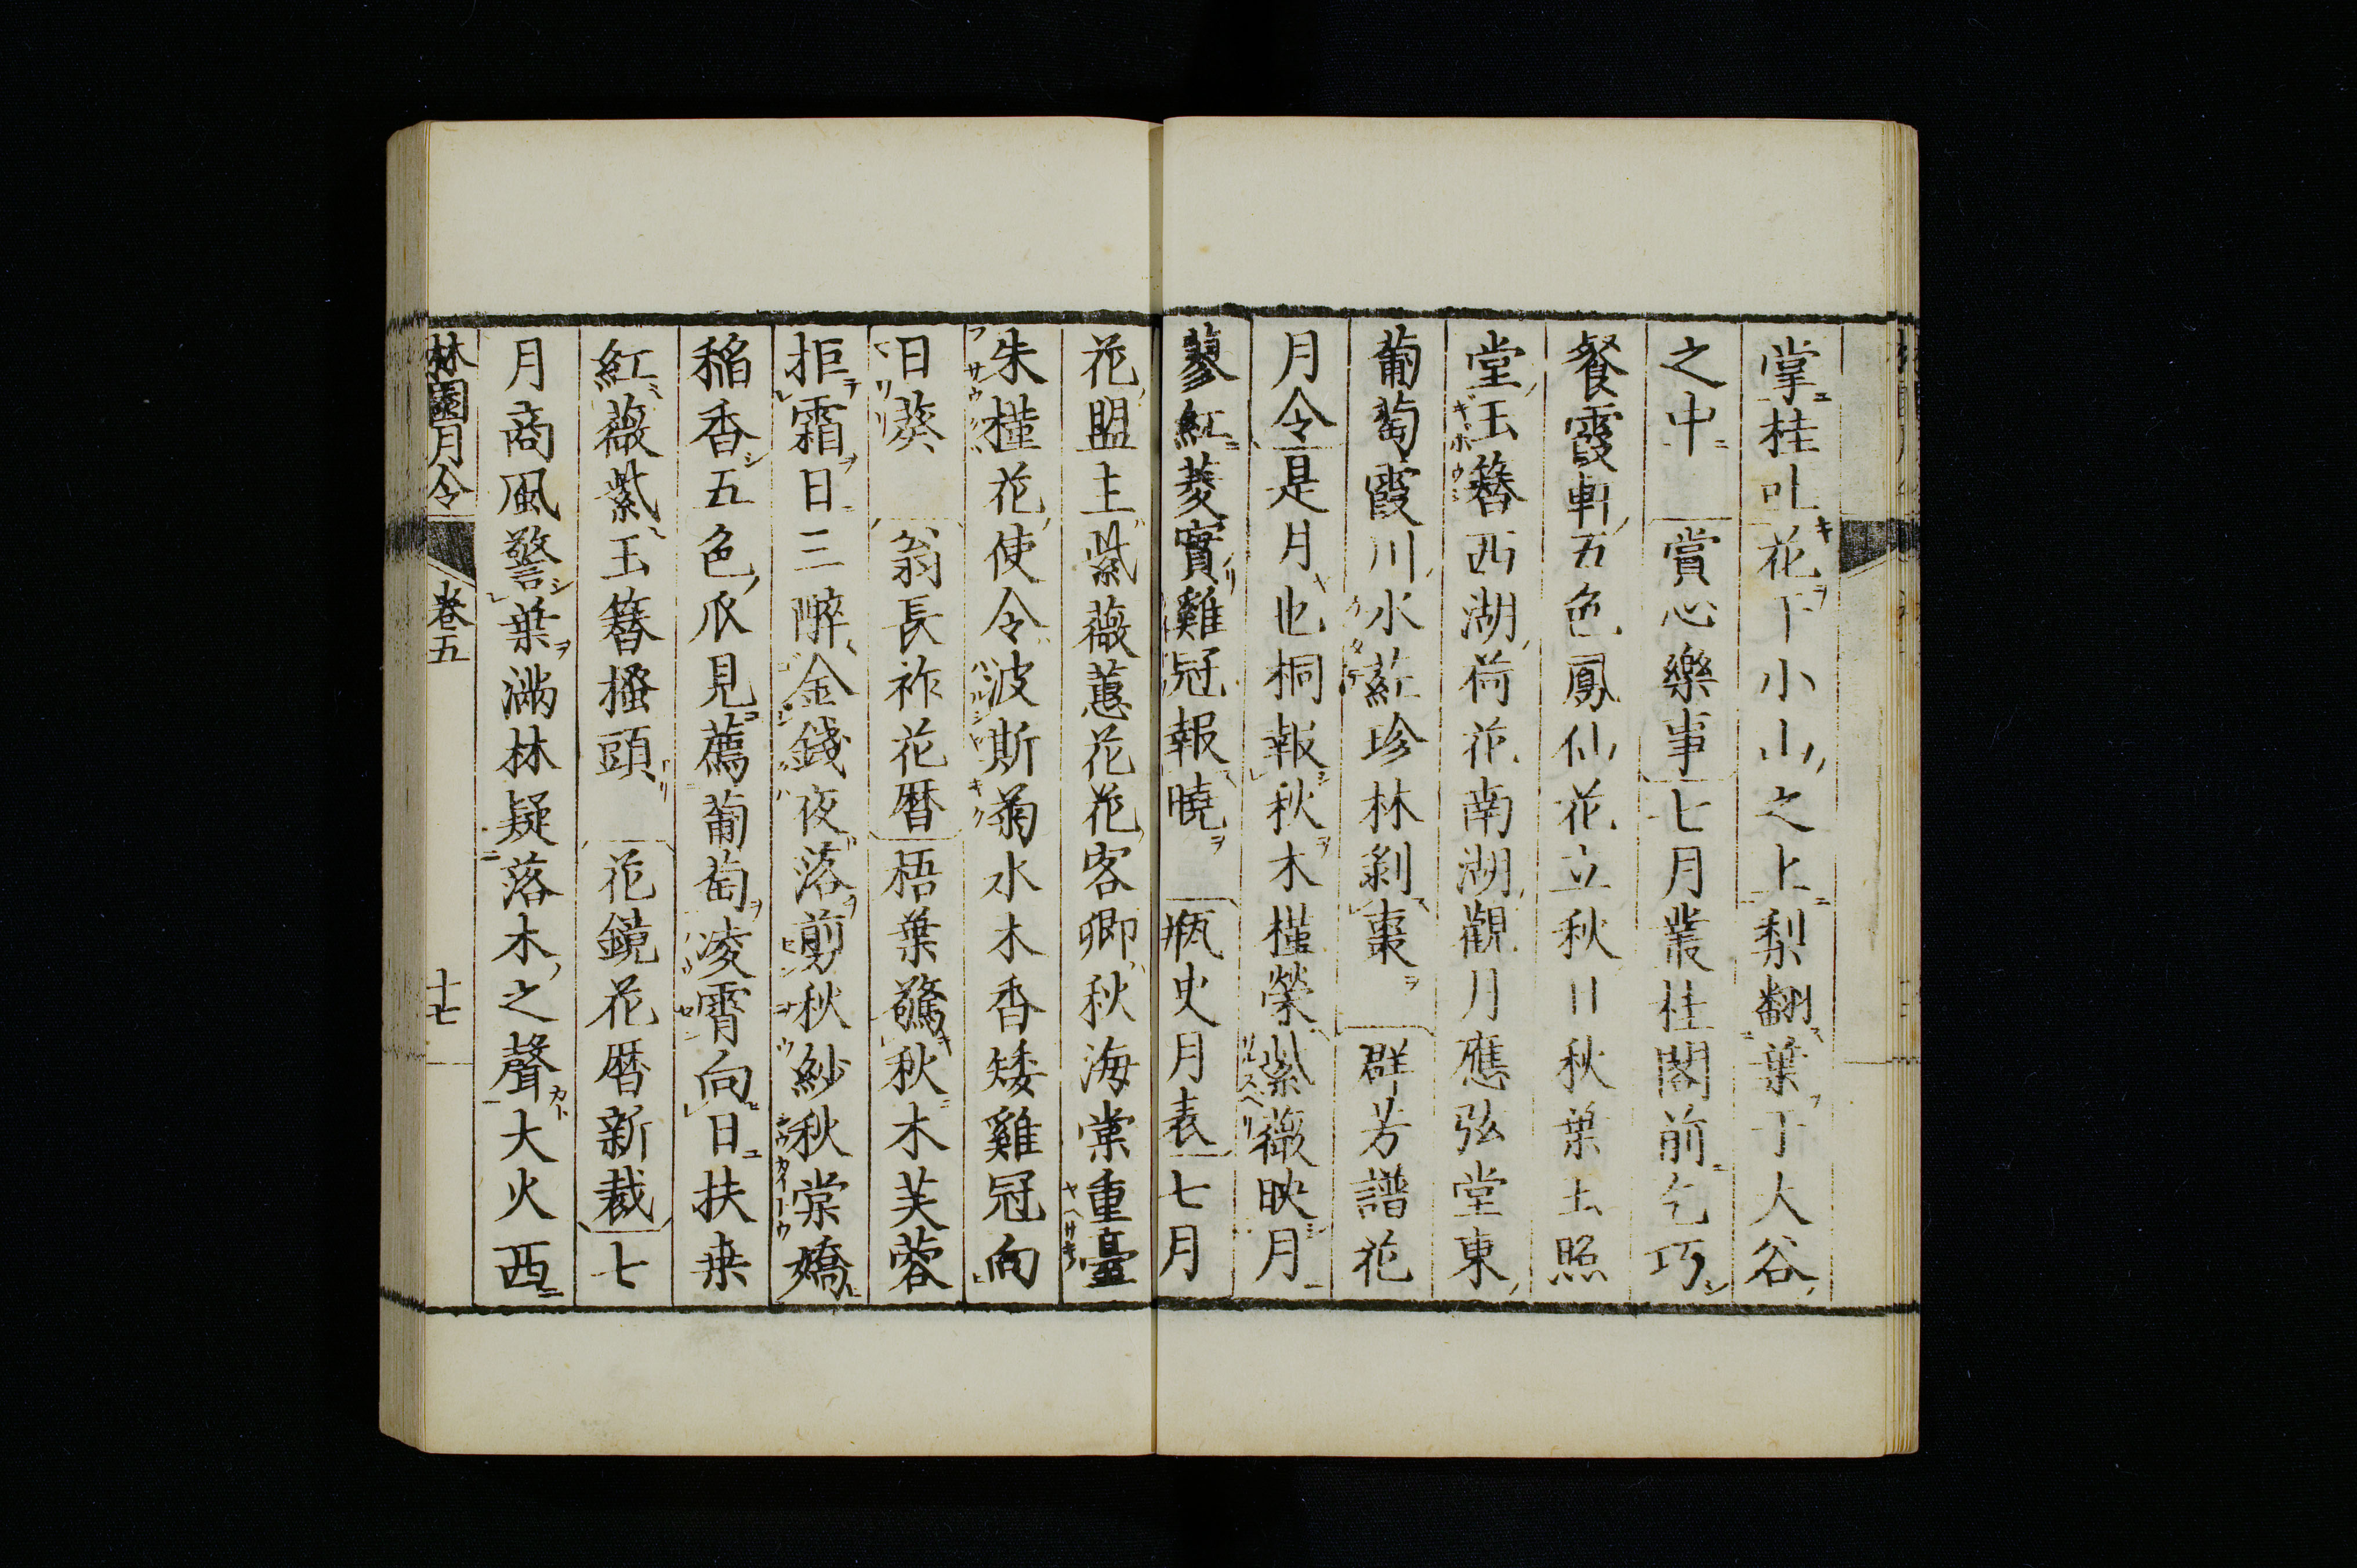 掌桂吐花下小山之上梨翻葉于大谷
之中　賞心樂事七月叢桂閣前乞巧
餐霞軒五色鳳仙花立秋日秋葉玉照
堂玉簪西湖荷花南湖觀月應弦堂東
葡萄霞川水葒珍林剝棗　群芳譜花
月令是月也桐報秋木槿榮紫薇映月
蓼紅菱實雞冠報曉　瓶史月表七月
花盟主紫薇蕙花花客卿秋海棠重臺
朱槿花使令波斯菊水木香矮雞冠向
日葵　翁長祚花暦梧葉驚秋木芙蓉
拒霜日三醉金錢夜落剪秋紗秋棠嬌
稲香五色爪見薦葡萄凌霄向日扶桒
紅薇紫玉簪搔頭　花鏡花暦新裁七
月商風警葉滿林疑落木之聲大火西
林園月令　卷五　十七